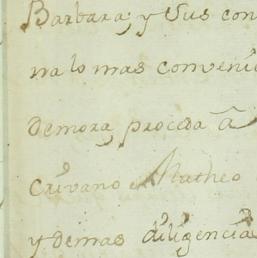 Barbara; y Sus con
na lo mas conveni
demora, proceda â
Crivano Matheo
y demas diligencia